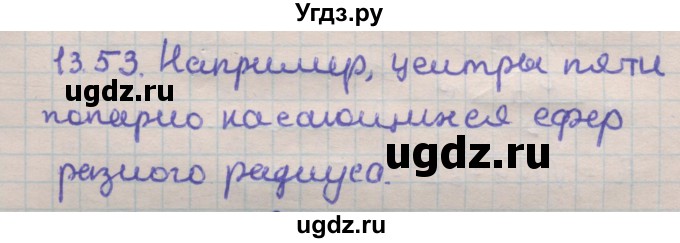 Угдз.ру
13.53. Например, центры пяти
попарно касающихся сфер
разного радиуса.
ugdz.ru
ugdz.ru
ugdz.ru
ugdz.ru